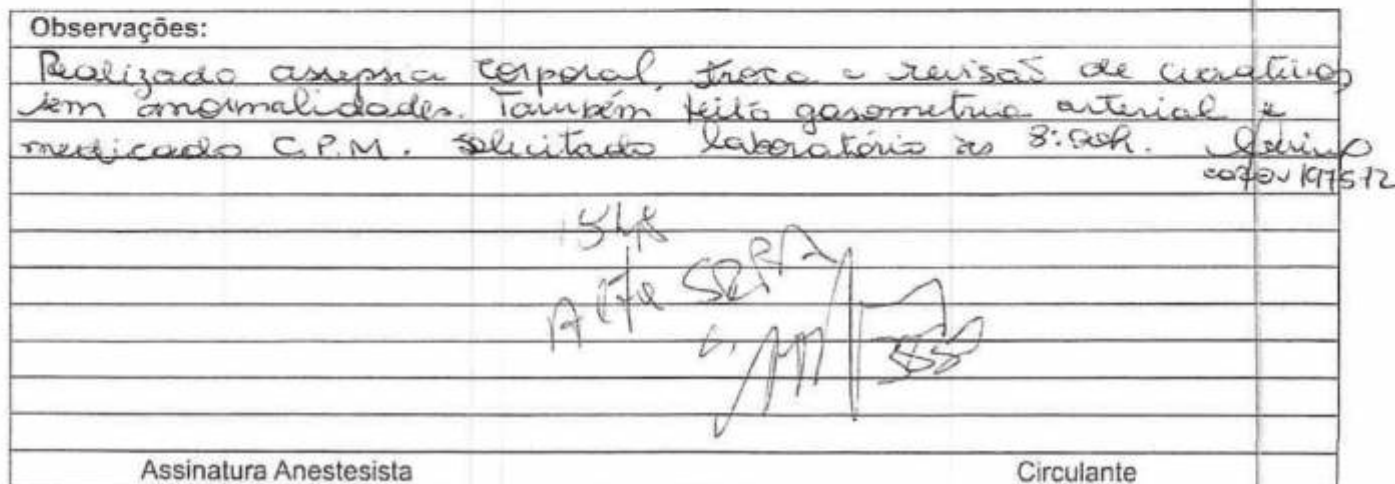 Observações:
Realizado assepsia corporal, troca e revisão de curativos
sem anormalidades. Também feito gasometria arterial e
medicado C.P.M. Solicitado laboratório às
Alta SRPA
Assinatura Anestesista Circulante